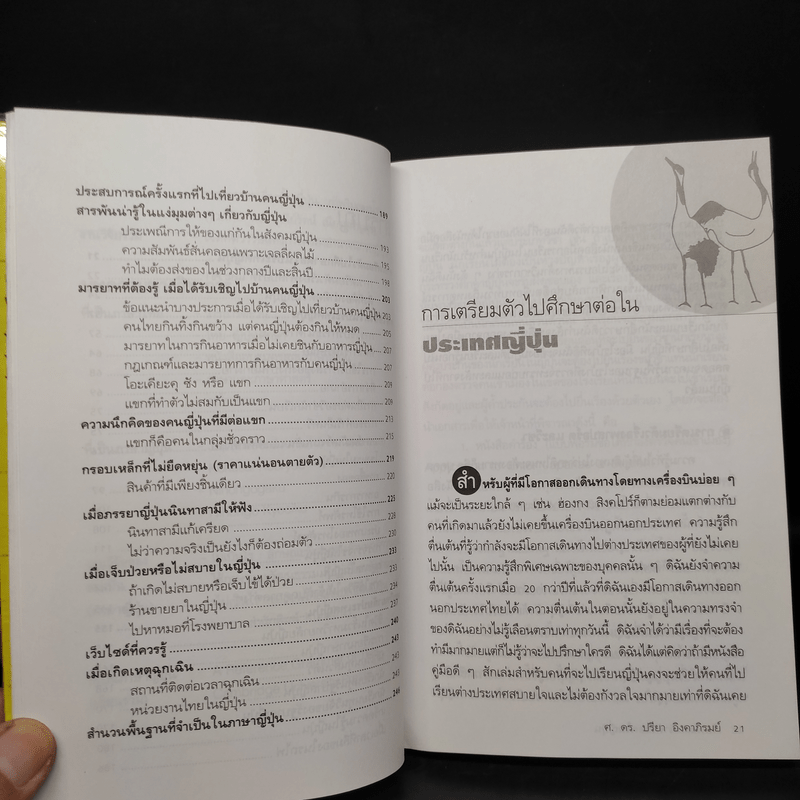 ประสบการณ์ครั้งแรกที่ไปเที่ยวบ้านคนญี่ปุ่น ........ 189
สารพันน่ารู้ในแง่มุมต่างๆ เกี่ยวกับญี่ปุ่น
ประเพณีการให้ของแก่กันในสังคมญี่ปุ่น ........ 193
ความสัมพันธ์สั่นคลอนเพราะเจลลี่ผลไม้ ........ 195
ทำไมต้องส่งของในช่วงกลางปีและสิ้นปี ........ 198
มารยาทที่ต้องรู้ เมื่อได้รับเชิญไปบ้านคนญี่ปุ่น ........ 203
ข้อแนะนำบางประการเมื่อได้รับเชิญไปเที่ยวบ้านคนญี่ปุ่น 203
คนไทยกินทิ้งกินขว้าง แต่คนญี่ปุ่นต้องกินให้หมด ..... 205
มารยาทในการกินอาหารเมื่อไม่เคยชินกับอาหารญี่ปุ่น .. 207
กฎเกณฑ์และมารยาทการกินอาหารกับคนญี่ปุ่น ........ 207
โอะเคียะคุ ซัง หรือ แขก ........ 209
แขกที่ทำตัวไม่สมกับเป็นแขก ........ 209
ความนึกคิดของคนญี่ปุ่นที่มีต่อแขก ........ 213
แขกก็คือคนในกลุ่มชั่วคราว ........ 215
กรอบเหล็กที่ไม่ยืดหยุ่น (ราคาแน่นอนตายตัว) ........ 219
สินค้าที่มีเพียงชิ้นเดียว ........ 220
เมื่อภรรยาญี่ปุ่นนินทาสามีให้ฟัง ........ 225
นินทาสามีแก้เครียด ........ 228
ไม่ว่าความจริงเป็นยังไงก็ต้องถ่อมตัว ........ 230
เมื่อเจ็บป่วยหรือไม่สบายในญี่ปุ่น ........ 233
ถ้าเกิดไม่สบายหรือเจ็บไข้ได้ป่วย ........ 233
ร้านขายยาในญี่ปุ่น ........ 234
ไปหาหมอที่โรงพยาบาล ........ 237
เว็บไซต์ที่ควรรู้ ........ 240
เมื่อเกิดเหตุฉุกเฉิน ........ 243
สถานที่ติดต่อเวลาฉุกเฉิน ........ 243
หน่วยงานไทยในญี่ปุ่น ........ 245
สำนวนพื้นฐานที่จำเป็นในภาษาญี่ปุ่น ........ 246
การเตรียมตัวไปศึกษาต่อใน
ประเทศญี่ปุ่น
สำหรับผู้ที่มีโอกาสออกเดินทางโดยทางเครื่องบินบ่อย ๆ
แม้จะเป็นระยะใกล้ ๆ เช่น ฮ่องกง สิงคโปร์ก็ตามย่อมแตกต่างกับ
คนที่เกิดมาแล้วยังไม่เคยขึ้นเครื่องบินออกนอกประเทศ ความรู้สึก
ตื่นเต้นที่รู้ว่ากำลังจะมีโอกาสเดินทางไปต่างประเทศของผู้ที่ยังไม่เคย
ไปนั้น เป็นความรู้สึกพิเศษเฉพาะของบุคคลนั้น ๆ ดิฉันยังจำความ
ตื่นเต้นครั้งแรกเมื่อ 20 กว่าปีที่แล้วที่ดิฉันเองมีโอกาสเดินทางออก
นอกประเทศไทยได้ ความตื่นเต้นในตอนนั้นยังอยู่ในความทรงจำ
ของดิฉันอย่างไม่รู้เลือนตราบเท่าทุกวันนี้ ดิฉันจำได้ว่ามีเรื่องที่จะต้อง
ทำมีมากมายแต่ก็ไม่รู้ว่าจะไปปรึกษาใครดี ดิฉันได้แต่คิดว่าถ้ามีหนังสือ
คู่มือดี ๆ สักเล่มสำหรับคนที่จะไปเรียนญี่ปุ่นคงจะช่วยให้คนที่ไป
เรียนต่างประเทศสบายใจและไม่ต้องกังวลใจมากมายเท่าที่ดิฉันเคย
ศ. ดร. ปรียา อิงคาภิรมย์ 21